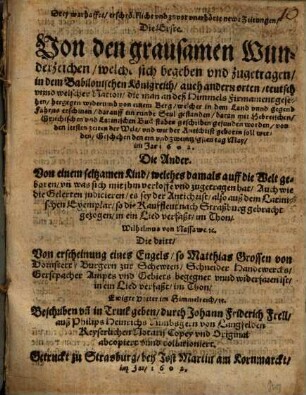 Drey warhaffte/ erschröckliche und zuvor unerhörte newe Zeitungen/
Die Erste.
Von den grausamen Wun-
derzeichen/ welche sich begeben und zugetragen/
in dem Babilonischen Königreich/ auch andern orten/ teutsch
unnd welscher Nation/ die man an des Himmels Firmament gese-
hen/ hergegen widerumb von einem Berg/ welcher in dem Land
erschienen/ darauff ein runde Saul gestanden/ darin mit Hebreischen/
Griechischen und Lateinischen Buchstaben geschriben gefunden worden/ von
den letsten zeiten der Welt/ und wie der Antichrist geboren soll wer-
den/ Geschehen den ein und zwentzigsten tag May/
im Jar 1601.
Die Ander.
Von einem seltzamen Kind/ welches damals auff die Welt ge-
boren/ un was sich mit ihm verloffe und zugetragen hat/ Auch wie
die Gelerten judicieren/ es sey der Antichrist/ also auß dem Latini-
schen Exemplar/ so die Kauffleut nach Straßburg gebracht
gezogen/ in ein Lied verfaßt/ im Thon/
Wilhelmus von Nassawe/ ec.
Die dritt/
Von erscheinung eines Engels/ so Matthias Grossen von
Dornstett/ Burgern zur Schewren/ Schneider Handwercks/
Gerspacher Amptes und Gebiets begegnet unnd widerfaren ist/
in ein Lied verfaßt/ im Thon.
Ewiger Vatter im Himmelreich/ ec.
Beschriben uñ in Truck geben/ durch Johann Friderich Frell/
auß Philips Heinrichs Humbßgern von Langfelden
Keyserlichen Notarij Copey und Original
abcopiert unnd vollumniert.
Getruckt zu Strasburg/ bey Jost Martin am Kornmarckt/
im Jar/ 1602.